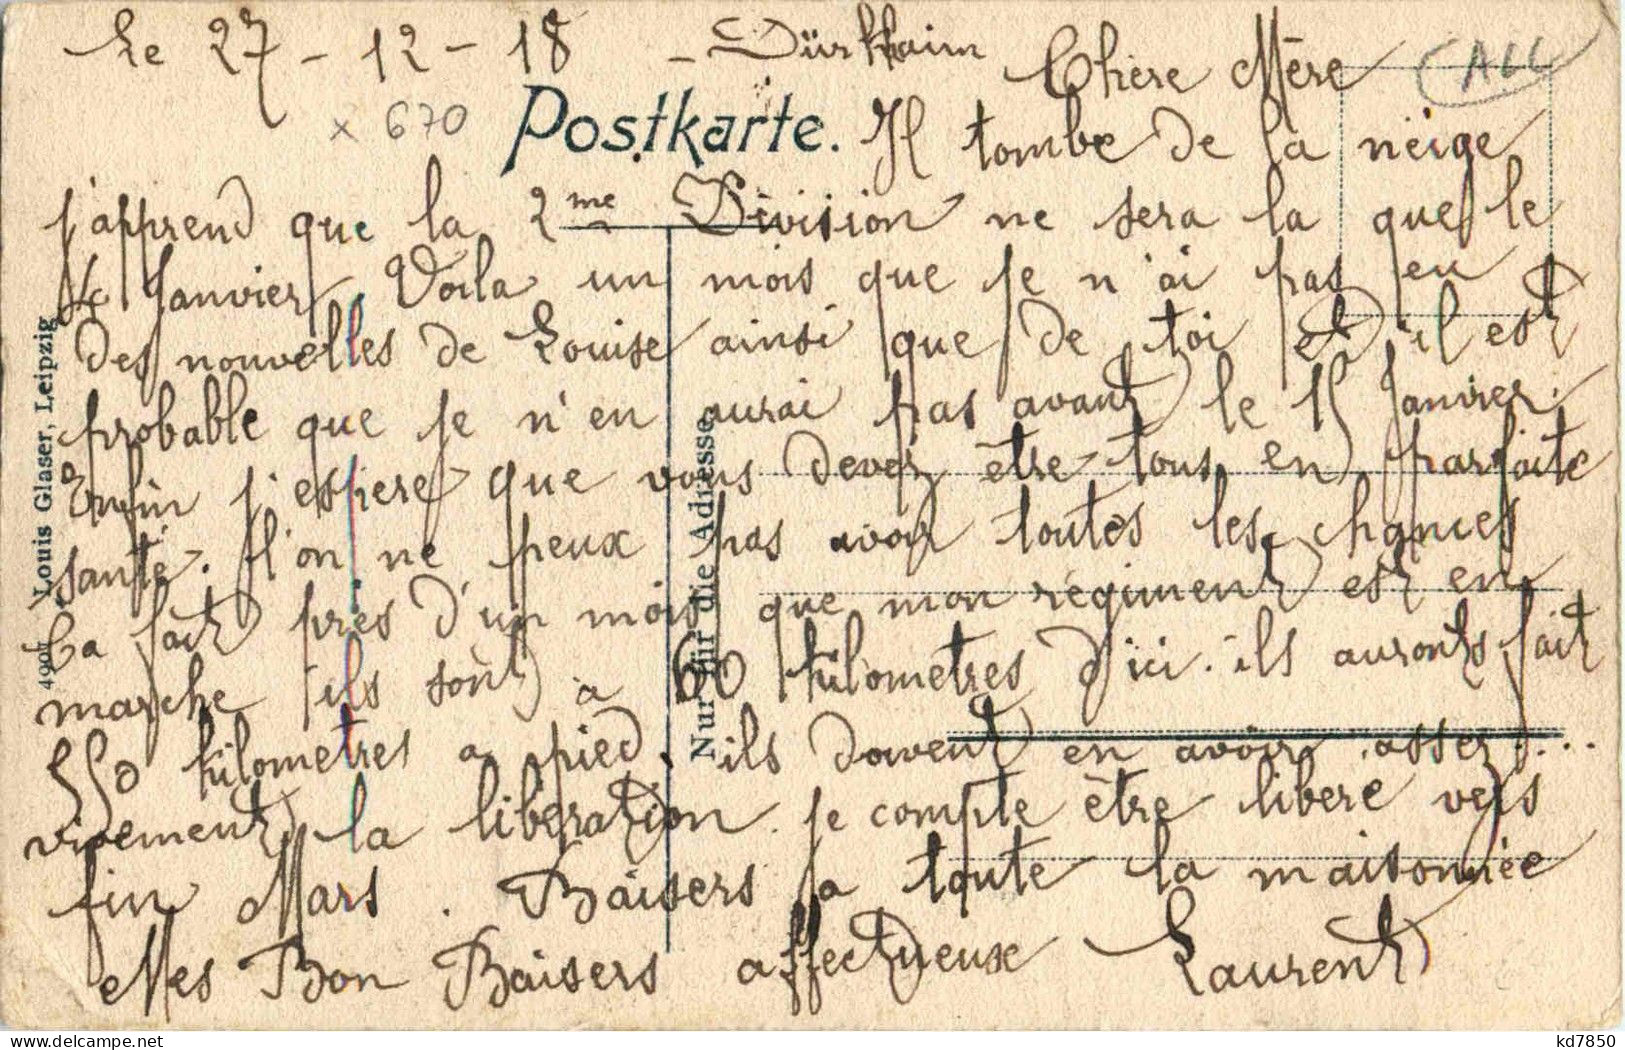 Le 27 - 12 - 18 - Dürkhaim
Chère Mère
CALL
x 670
Postkarte.
Il tombe de la neige
j'apprend que la 2me Division ne sera la que le
4 Janvier. Voila un mois que je n'ai pas eu
des nouvelles de Louise ainsi que de toi et il est
probable que je n'en aurai pas avant le 15 Janvier.
Enfin j'espere que vous devez être tous en parfaite
santé. l'on ne peux pas avoir toutes les chances
la fait près d'un mois que mon régiment est en
marche ils sont a 60 kilometres d'ici. ils auronts fait
550 kilometres a pied. ils doivent en avoir assez....
vivement la libération. je compte être libere vers
fin Mars. Baisers a toute la maisonnée
Mes Bon Baisers affectueux Laurent
4907 Louis Glaser, Leipzig
Nur für die Adresse.
kd7850